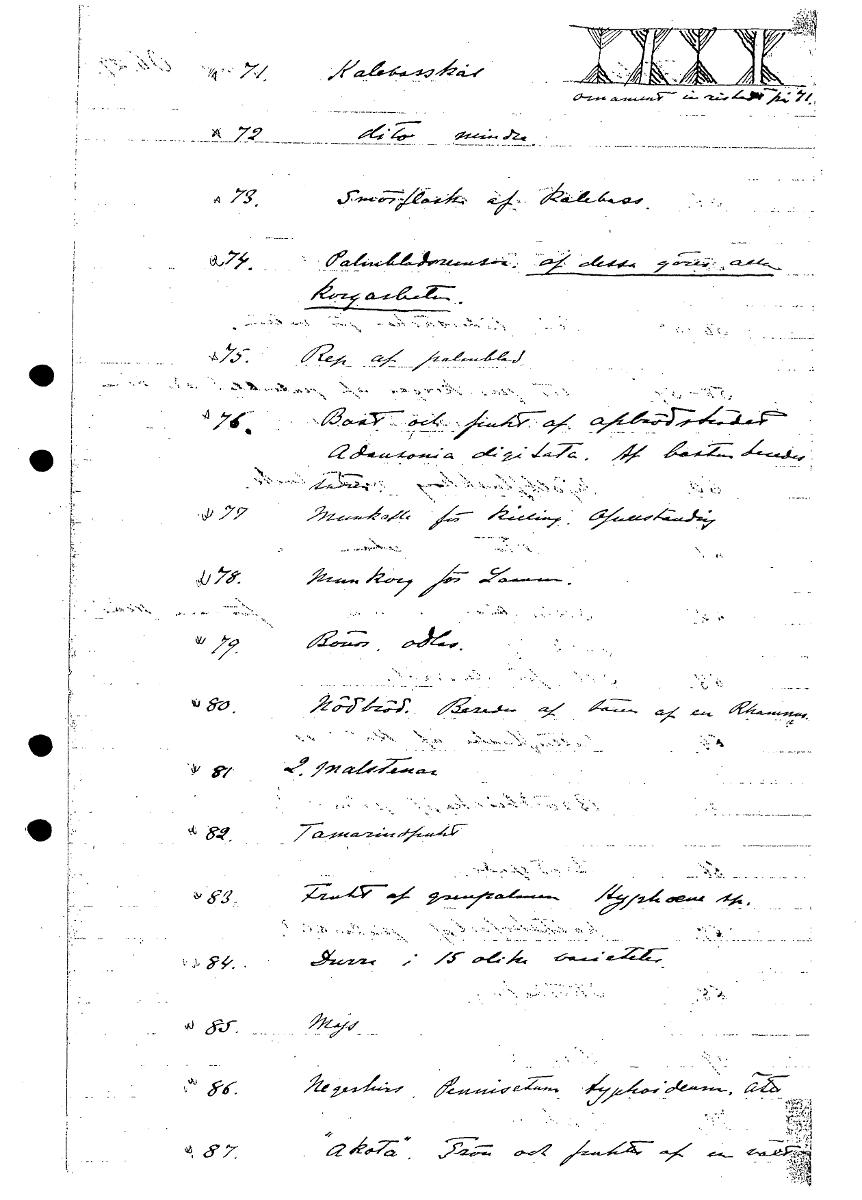 71. Kalebasskål
ornament inristadt på 71.
72 dito mindre.
73. Smörflaska af kalebass.
74. Palmbladsremsor. af dessa göres alla
korgarbeten.
75. Rep af palmblad
76. Bast och frukt af apbrödsträdet
Adansonia digitata. Af basten beredes
77 Munkafle för killing.
78. Munkorg för Lamm.
79. Bönor. odlas.
80. Nödbröd. Beredes af bären af en Rhamnus.
81 2. Malstenar
82. Tamarindfrukt
83. Frukt af grenpalmen Hyphæne sp.
84. Durra i 15 olika varieteter.
85. Majs
86. Negerhirs Pennisetum typhoideum.
87. "Akota". Frön och frukter af en